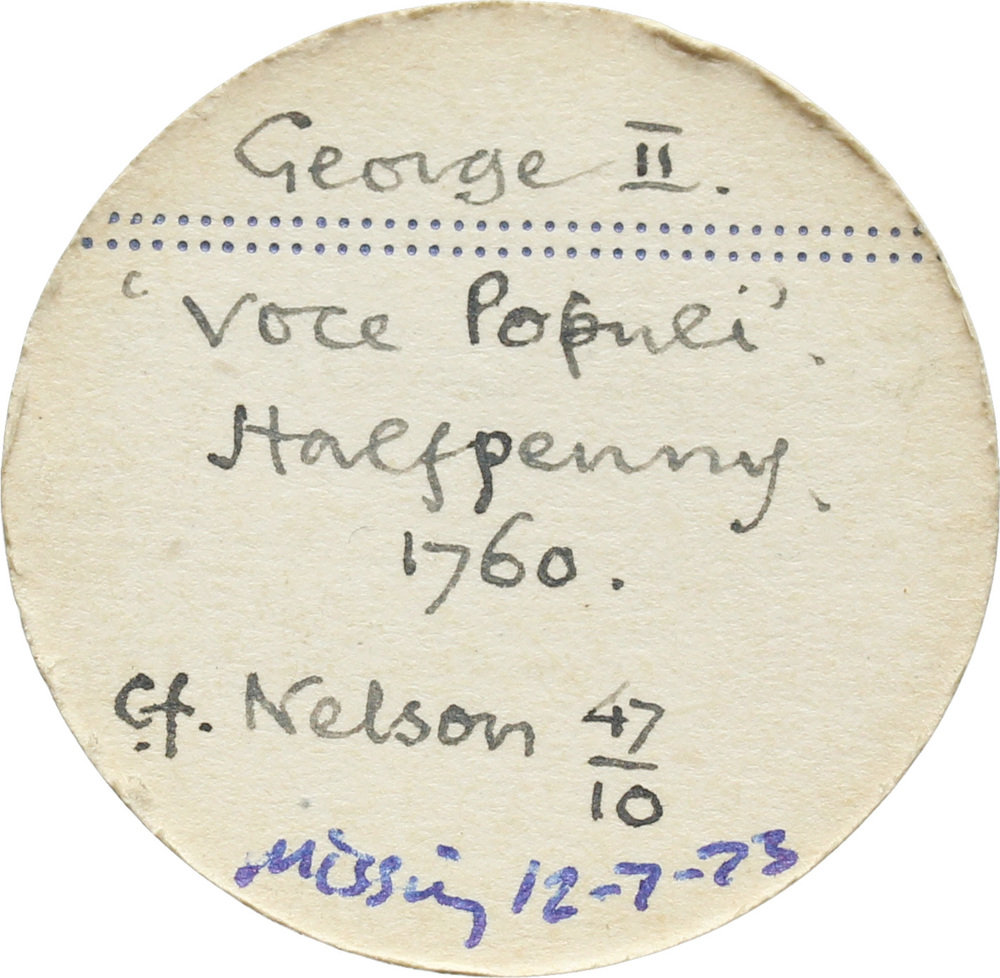 George II.
"Voce Populi".
Halfpenny.
1760.
Cf. Nelson 47/10
Missing 12-7-73